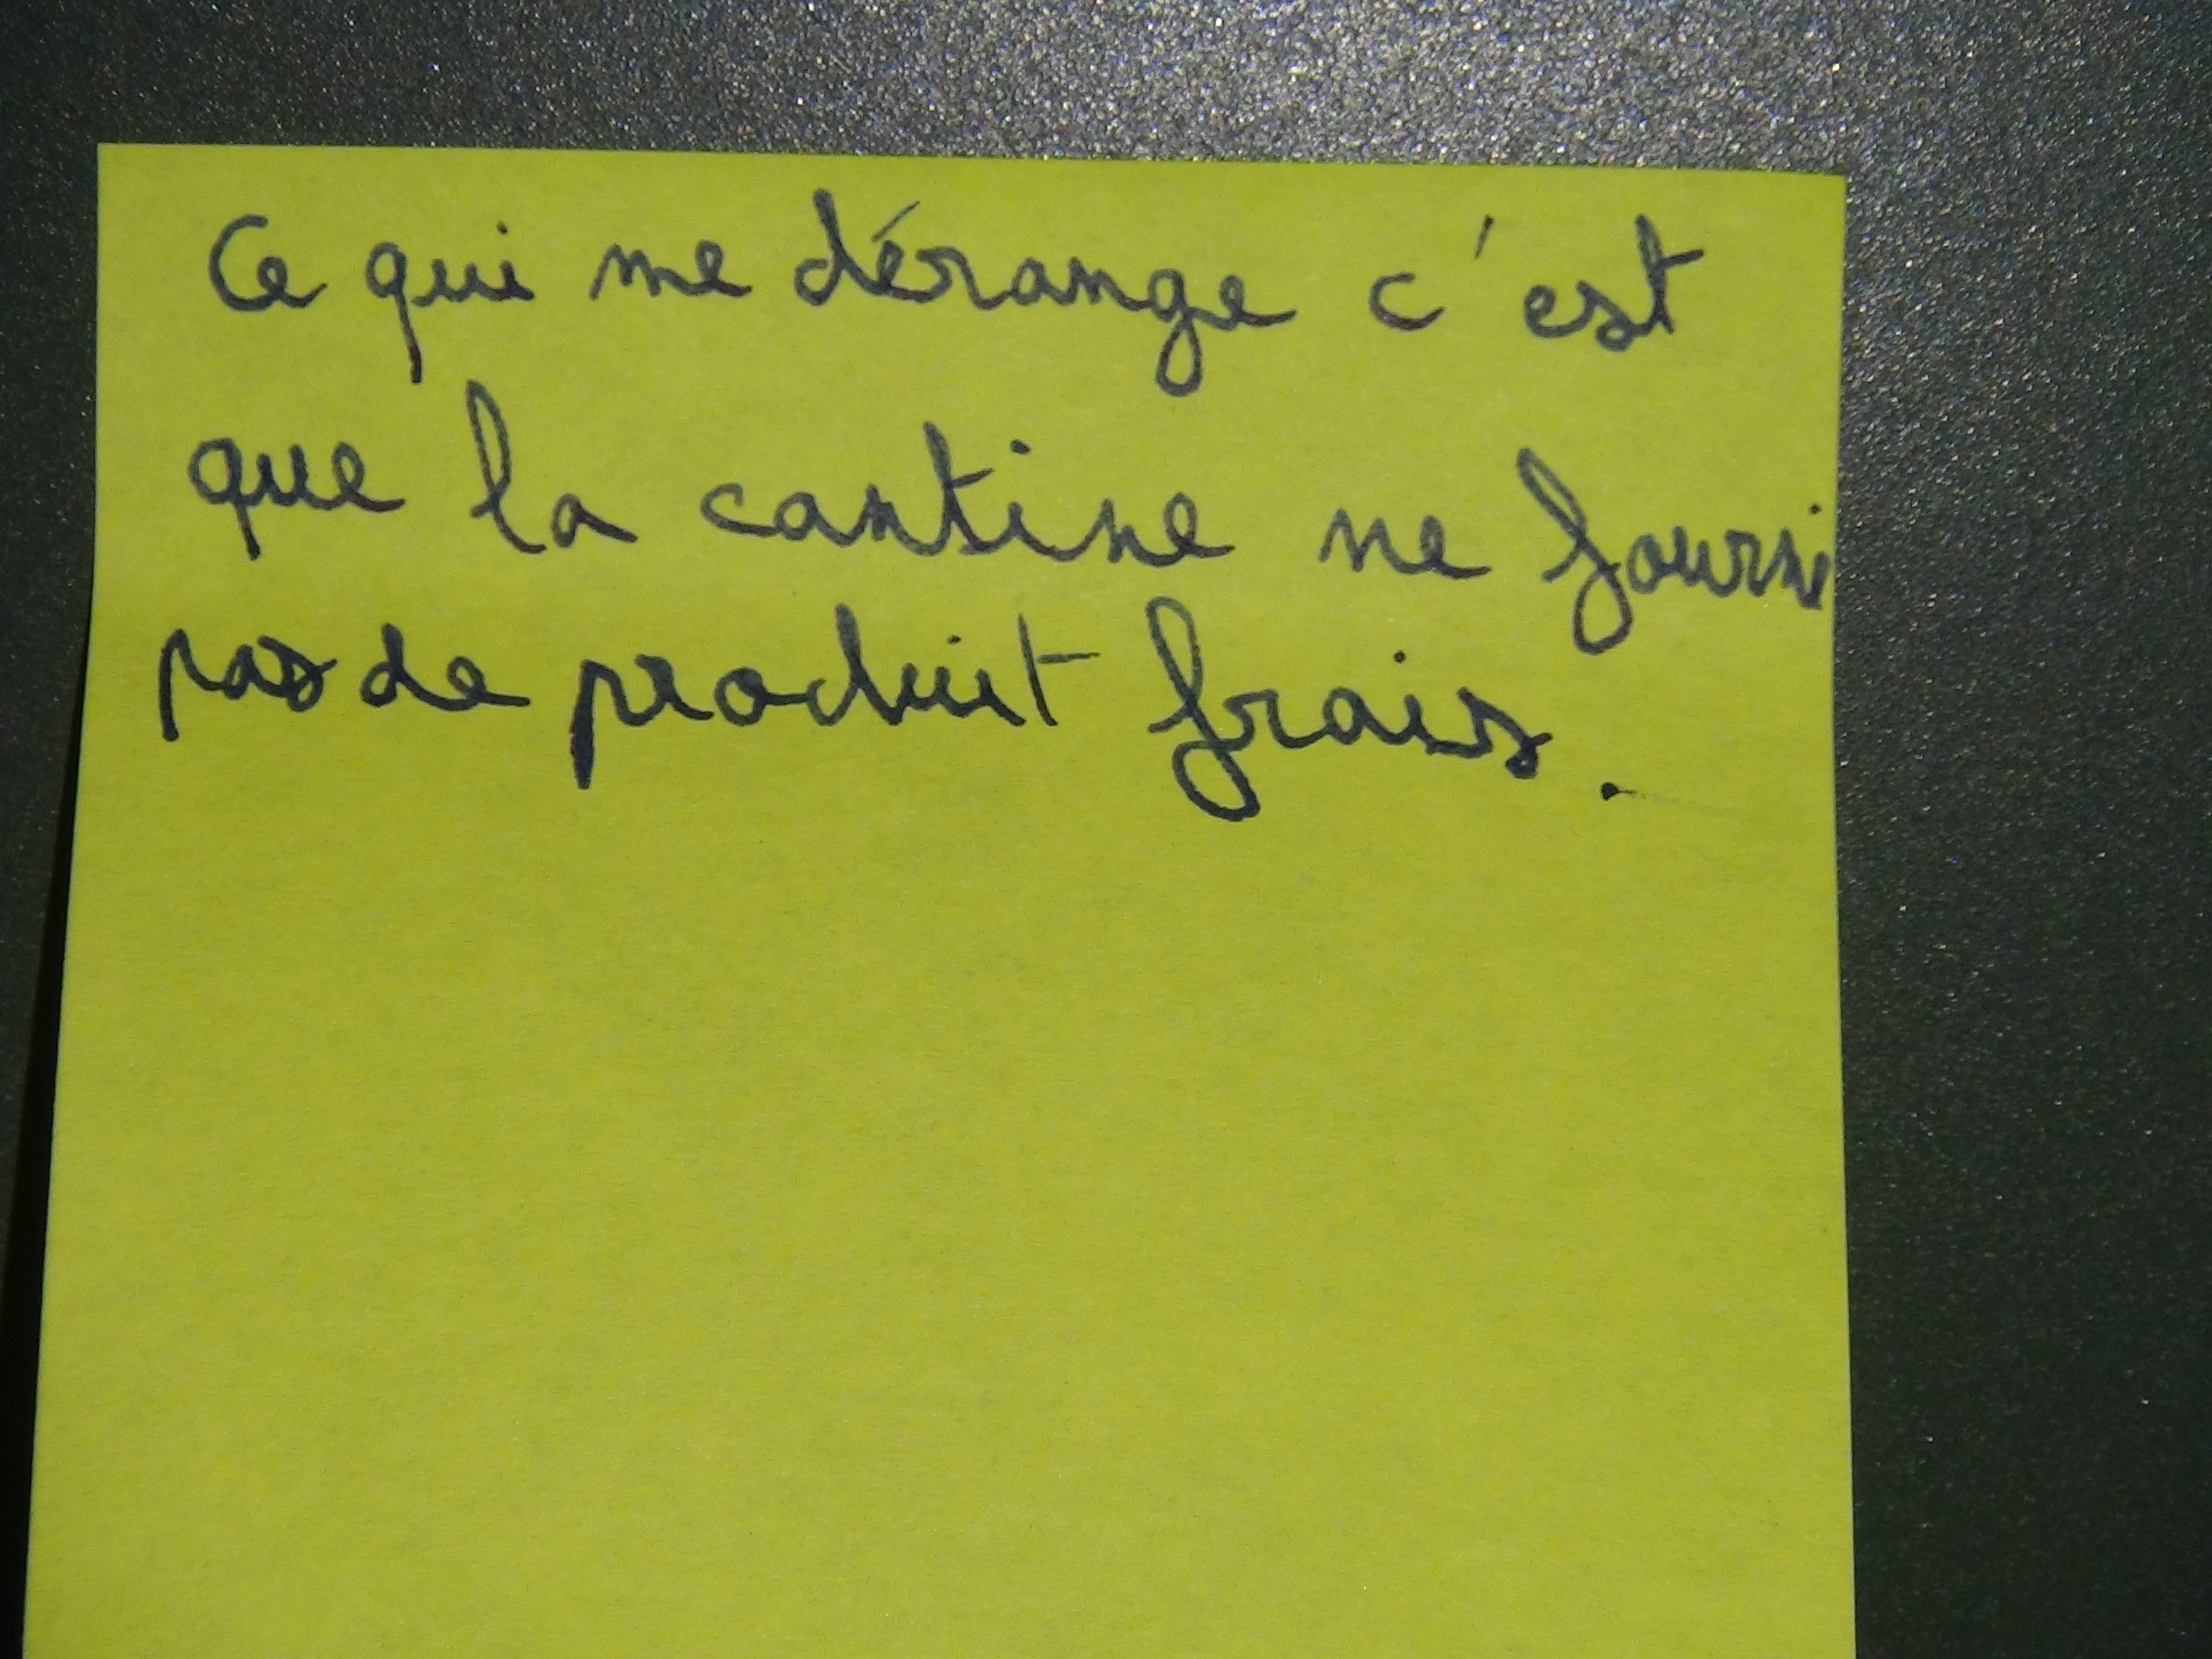 Ce qui me dérange c'est
que la cantine ne fourni
pas de produit frais.